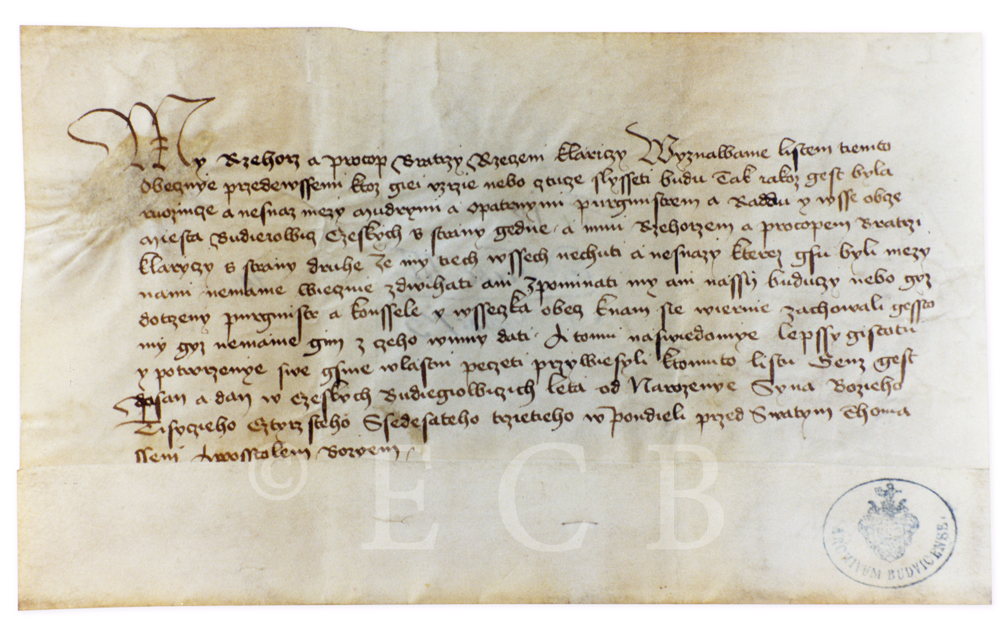 My Rzehorz a procop Bratrzy Rzeczeni klariczy Wyznawame listem tiemto
obecznye przedewssemi ktoz giei vzrzie nebo cztucze slysseti budu Tak iakoz gest byla
ruoznicze a nesnaz mezy mudrymi a opatrnymi purgmistrem a Raddu y wssie obcze
miesta Budieiowicz Czeskych s strany gedne a mnu Rzehorzem a procopem Bratrzi
klariczy s strany druhe ze my tiech wssech nechuti a nesnazy kterez gsu byli mezy
nami nemame wiecznie zdwihati ani zpominati my ani nassij buduczy nebo gyz
dotczeny purgmistr a konssele y wsseczka obecz knam sie wiernie zachowali gessto
my gyz nemame gim z czeho winny dati A tomu naswiedomye lepssy gistotu
y potwrzenye swe gsme wlastni peczeti przywiesyli ktomuto listu Genz gest
psan a dan w Czeskych Budiegiowiczich leta od Narozenye Syna Bozieho
Tisyczieho Cztyrzsteho Ssedesateho trzetieho w pondieli przed Swatym Thoma
ssem Apposstolem Bozyem
© ECB
ARCHIVUM BUDVICENSE